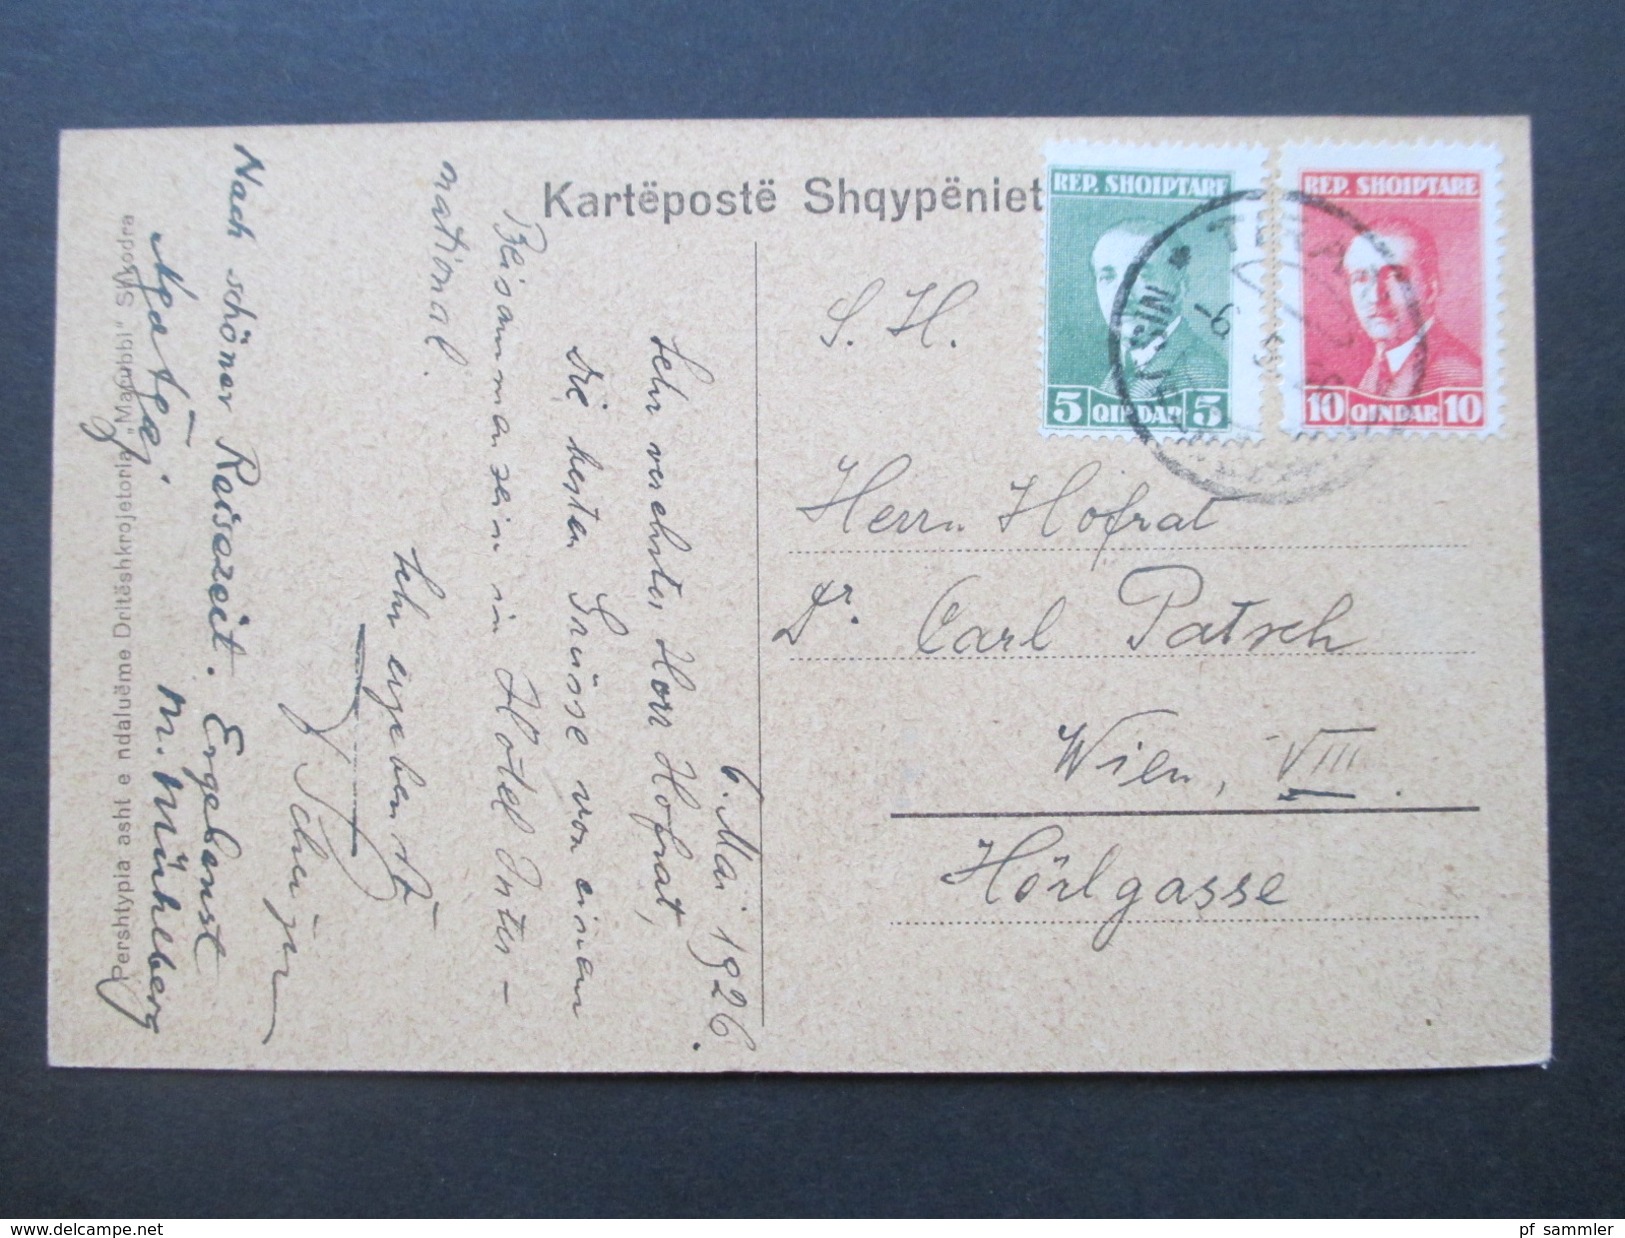 Kartëpostë Shqypëniet
REP. SHQIPTARE
5 QINDAR 5
REP. SHQIPTARE
10 QINDAR 10
S. H.
Herrn Hofrat
Dr. Carl Patsch
Wien, VIII.
Hörlgasse
6. Mai 1926.
Sehr verehrter Herr Hofrat,
die besten Grüsse von einem
Beisammensein in Hotel Inter-
national.
Sehr ergebenst
Nach schöner Reisezeit. Ergebenst
M. Mühlberg
Pershtypia asht e ndaluëme Dritëshkrojetorja „Marubbi" Shkodra
delcampe.net
pf_sammler